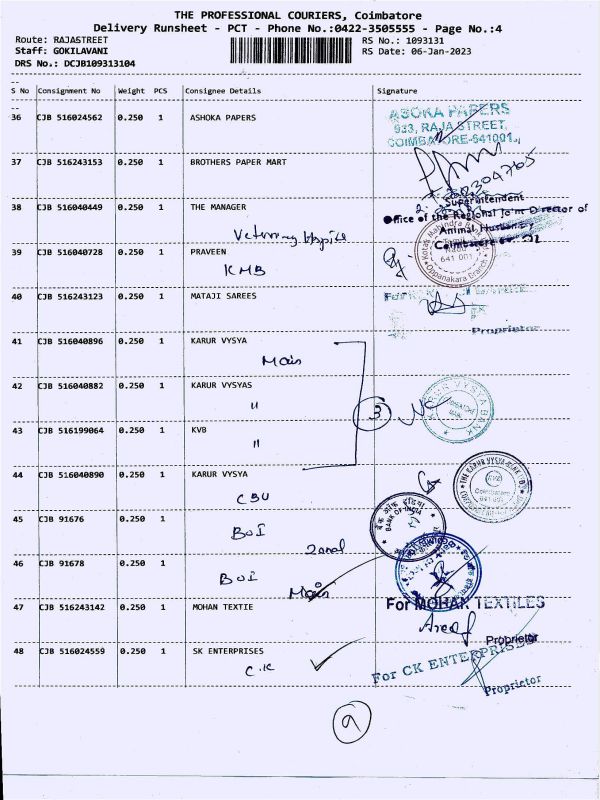 THE PROFESSIONAL COURIERS, Coimbatore
Delivery Runsheet - PCT - Phone No.:0422-3505555 - Page No.:4
Route: RAJASTREET RS No.: 1093131
Staff: GOKILAVANI RS Date: 06-Jan-2023
DRS No.: DCJB109313104
S No Consignment No Weight PCS Consignee Details Signature
36 CJB 516024562 0.250 1 ASHOKA PAPERS
ASOKA PAPERS
933, RAJA STREET,
COIMBATORE-641001.
37 CJB 516243153 0.250 1 BROTHERS PAPER MART
38 CJB 516040449 0.250 1 THE MANAGER
Superintendent
Office of the Regional Joint Director of
Animal Husbandry
Veterinary
39 CJB 516040728 0.250 1 PRAVEEN
KMB
Kotak Mahindra
641 001
Oppanakara Branch
40 CJB 516243123 0.250 1 MATAJI SAREES
Proprietor
41 CJB 516040896 0.250 1 KARUR VYSYA
Main
42 CJB 516040882 0.250 1 KARUR VYSYAS
"
3
KARUR VYSYA BANK
43 CJB 516199064 0.250 1 KVB
"
44 CJB 516040890 0.250 1 KARUR VYSYA
CBU
THE KARUR VYSYA BANK LTD
Coimbatore
641 001
45 CJB 91676 0.250 1
BOI
Zonal
बैंक ऑफ इंडिया
BANK OF INDIA
46 CJB 91678 0.250 1
BOI
Main
47 CJB 516243142 0.250 1 MOHAN TEXTIE
For MOHAN TEXTILES
Proprietor
48 CJB 516024559 0.250 1 SK ENTERPRISES
C.K
For CK ENTERPRISES
Proprietor
9